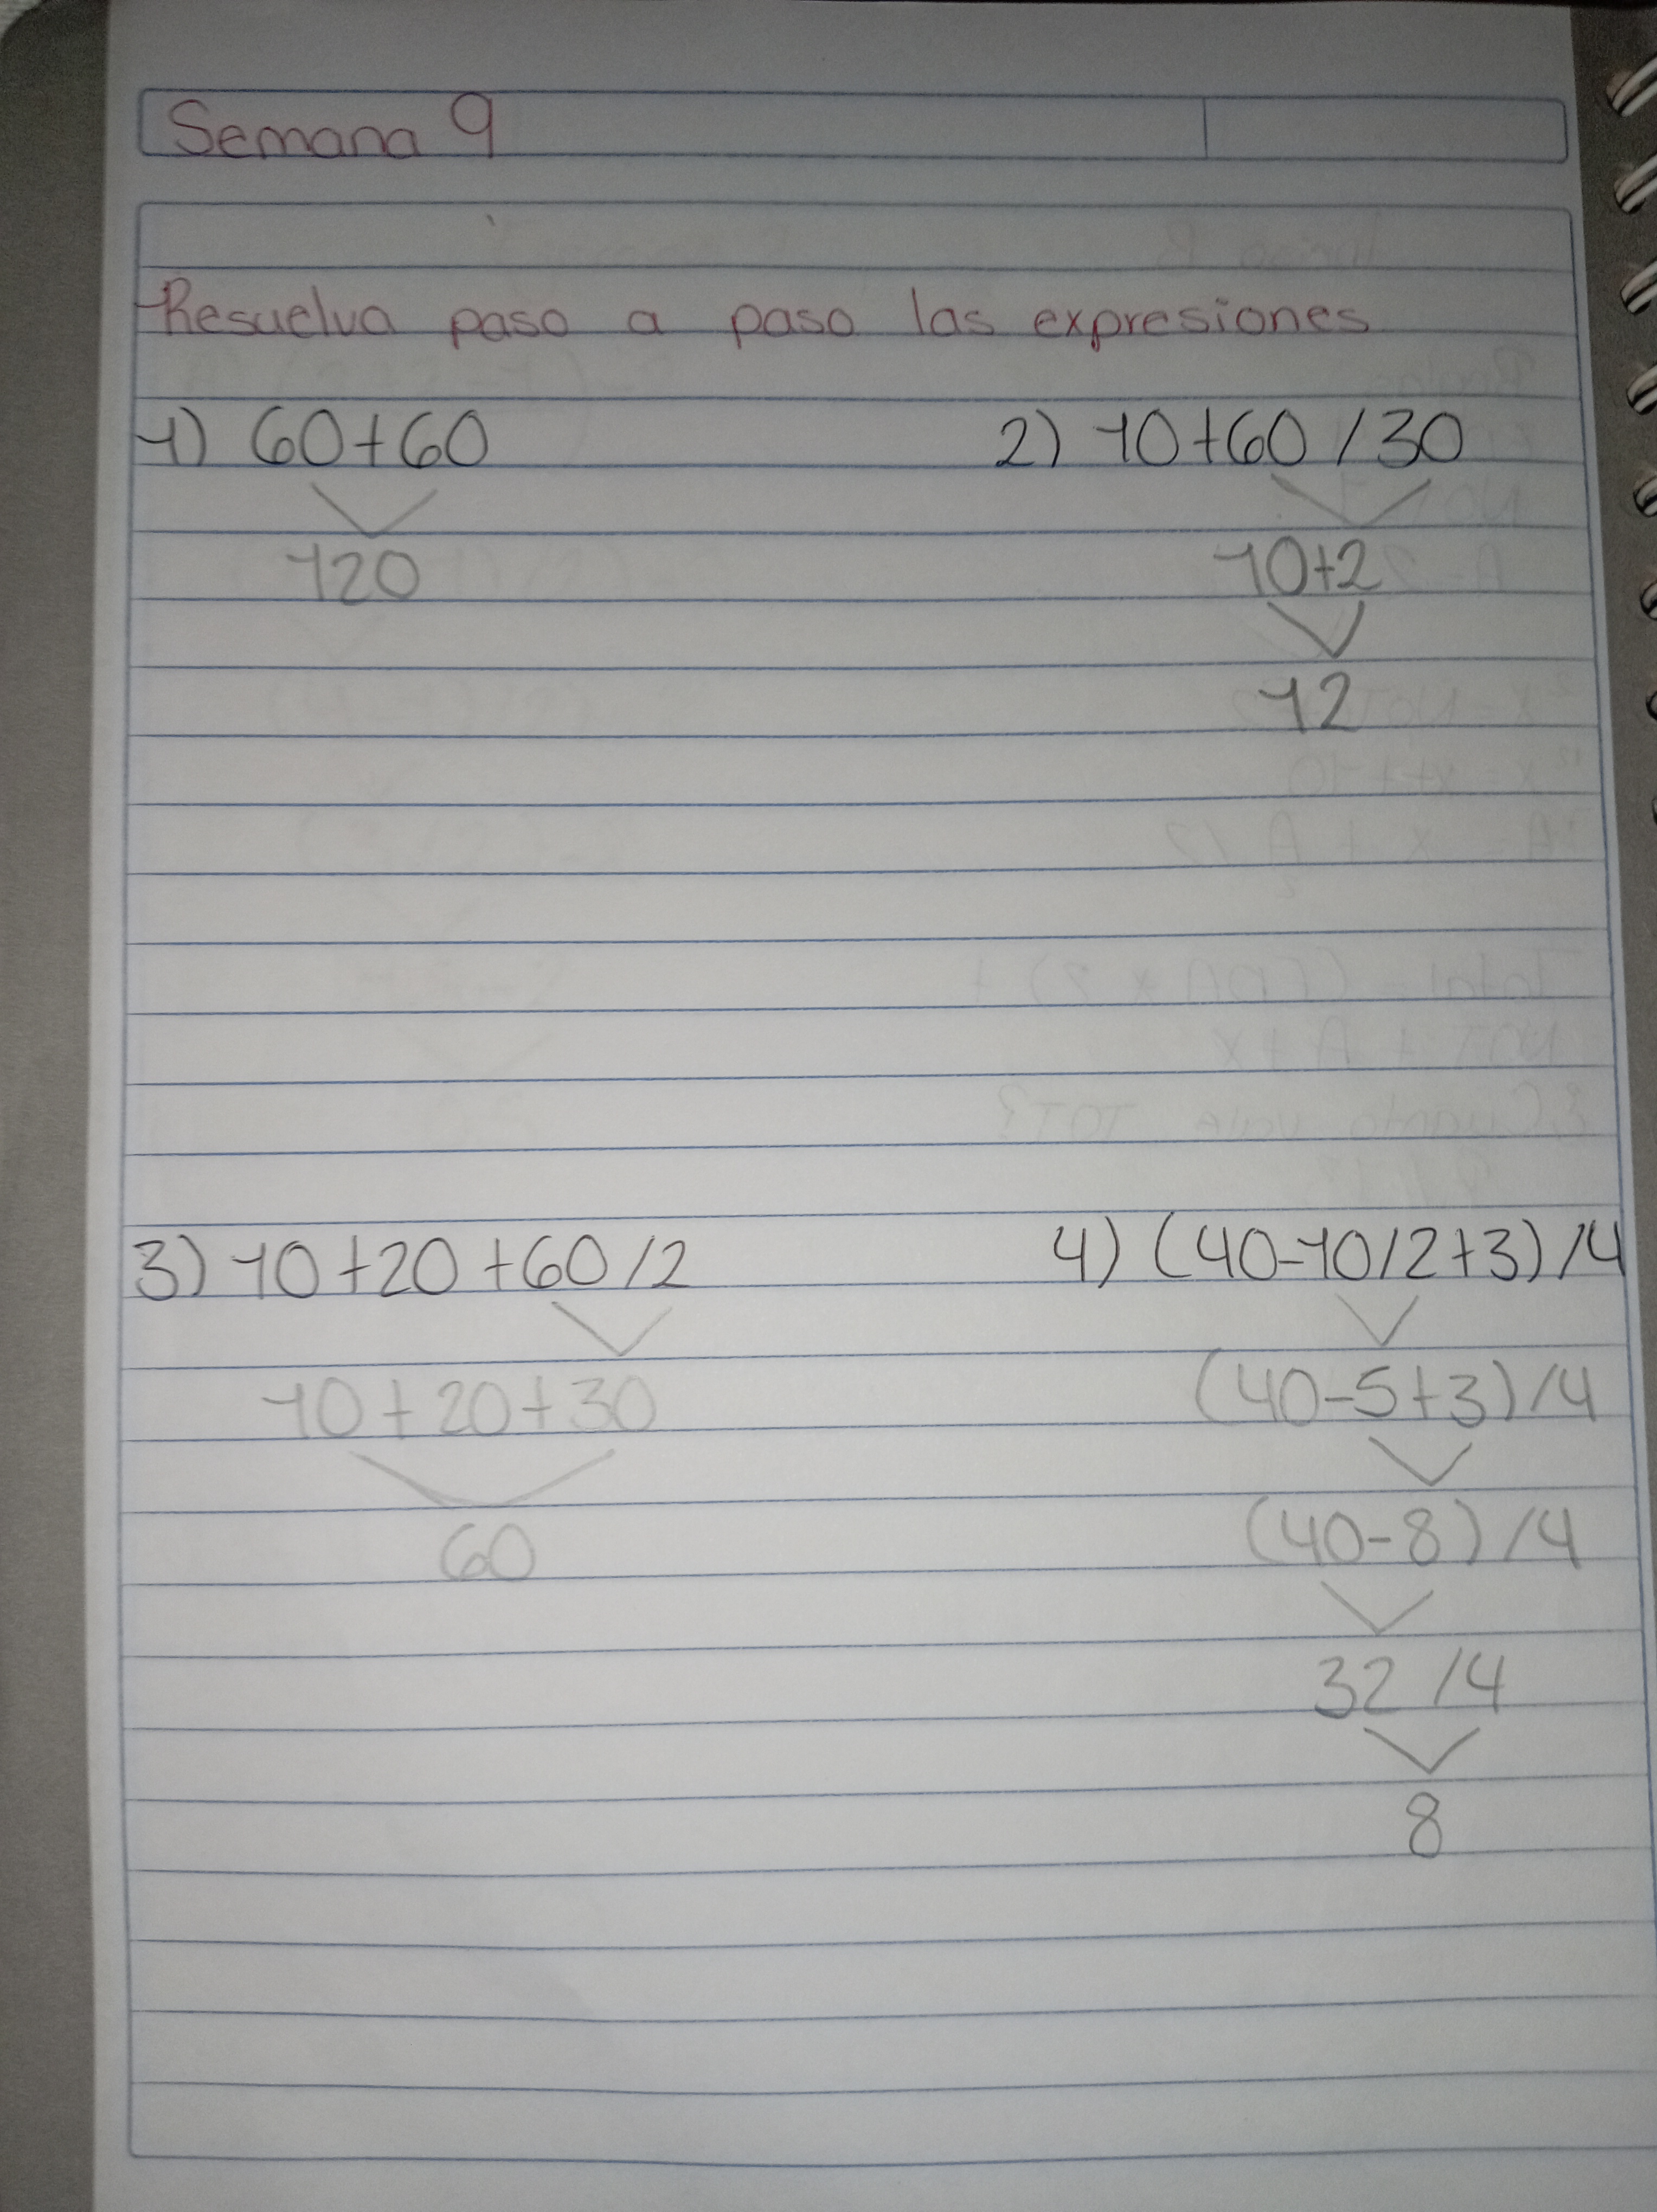 Semana 9
Resuelva paso a paso las expresiones
1) 60+60
120
2) 10+60/30
10+2
12
3) 10+20+60/2
10+20+30
60
4) (40-10/2+3)/4
(40-5+3)/4
(40-8)/4
32/4
8